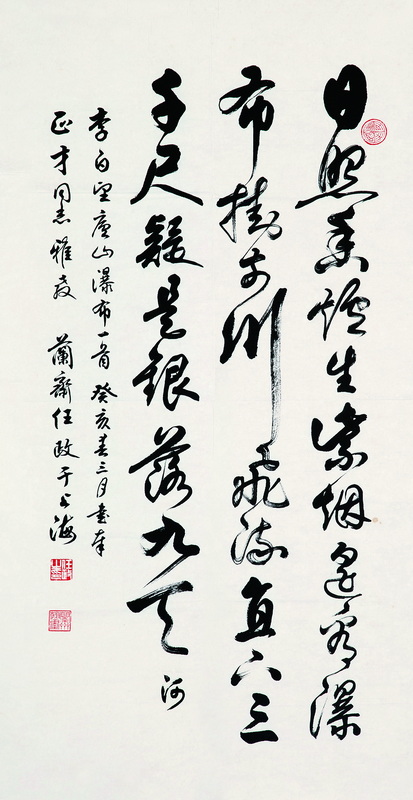 日照香爐生紫烟遥看瀑
布掛前川飛流直下三
千尺疑是銀落九天 河
李白望廬山瀑布一首 癸亥春三月書奉
正才同志雅教 蘭齋任政于上海